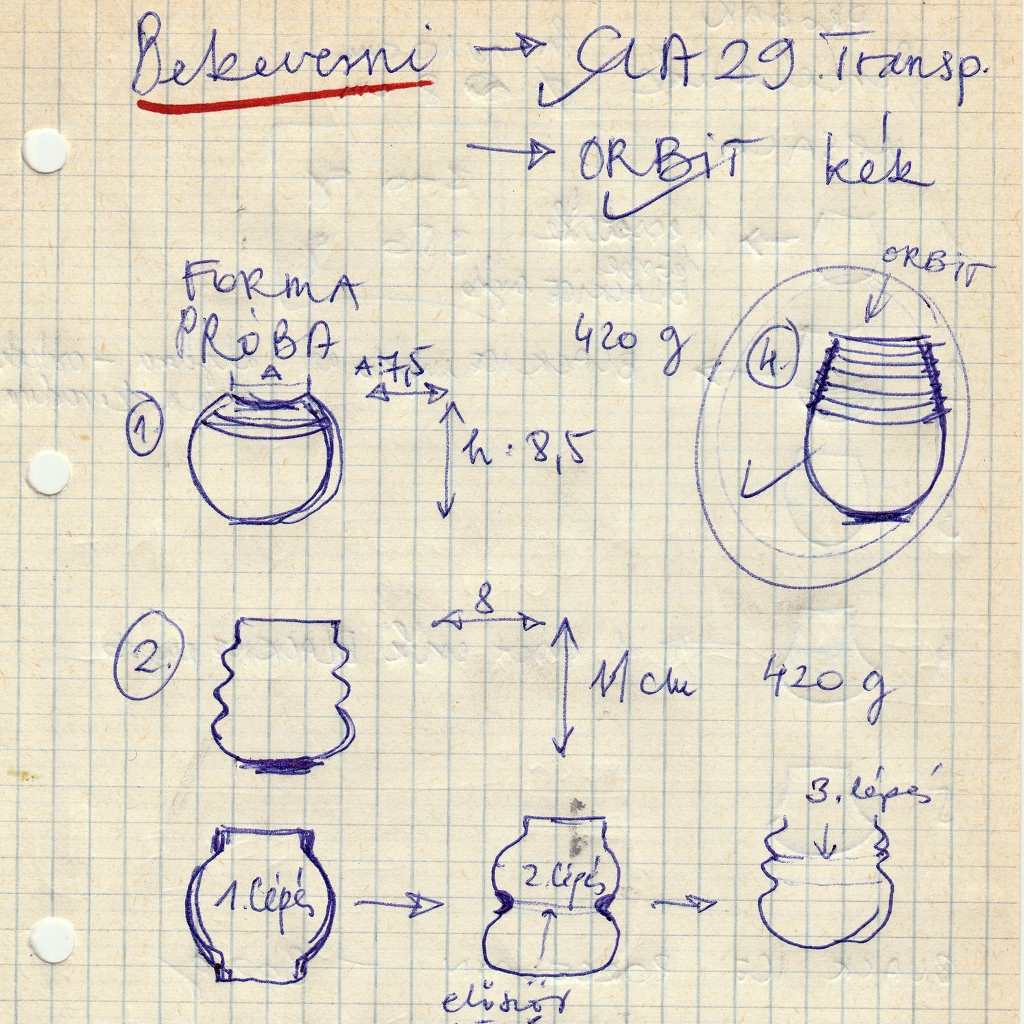 Bekeverni → CLA 29 Transp.
→ ORBIT kék
FORMA
PRÓBA
A
A: 7,5
1
h: 8,5
420 g
ORBIT
4.
2.
8
11 cm
420 g
1. lépés
2. lépés
3. lépés
először